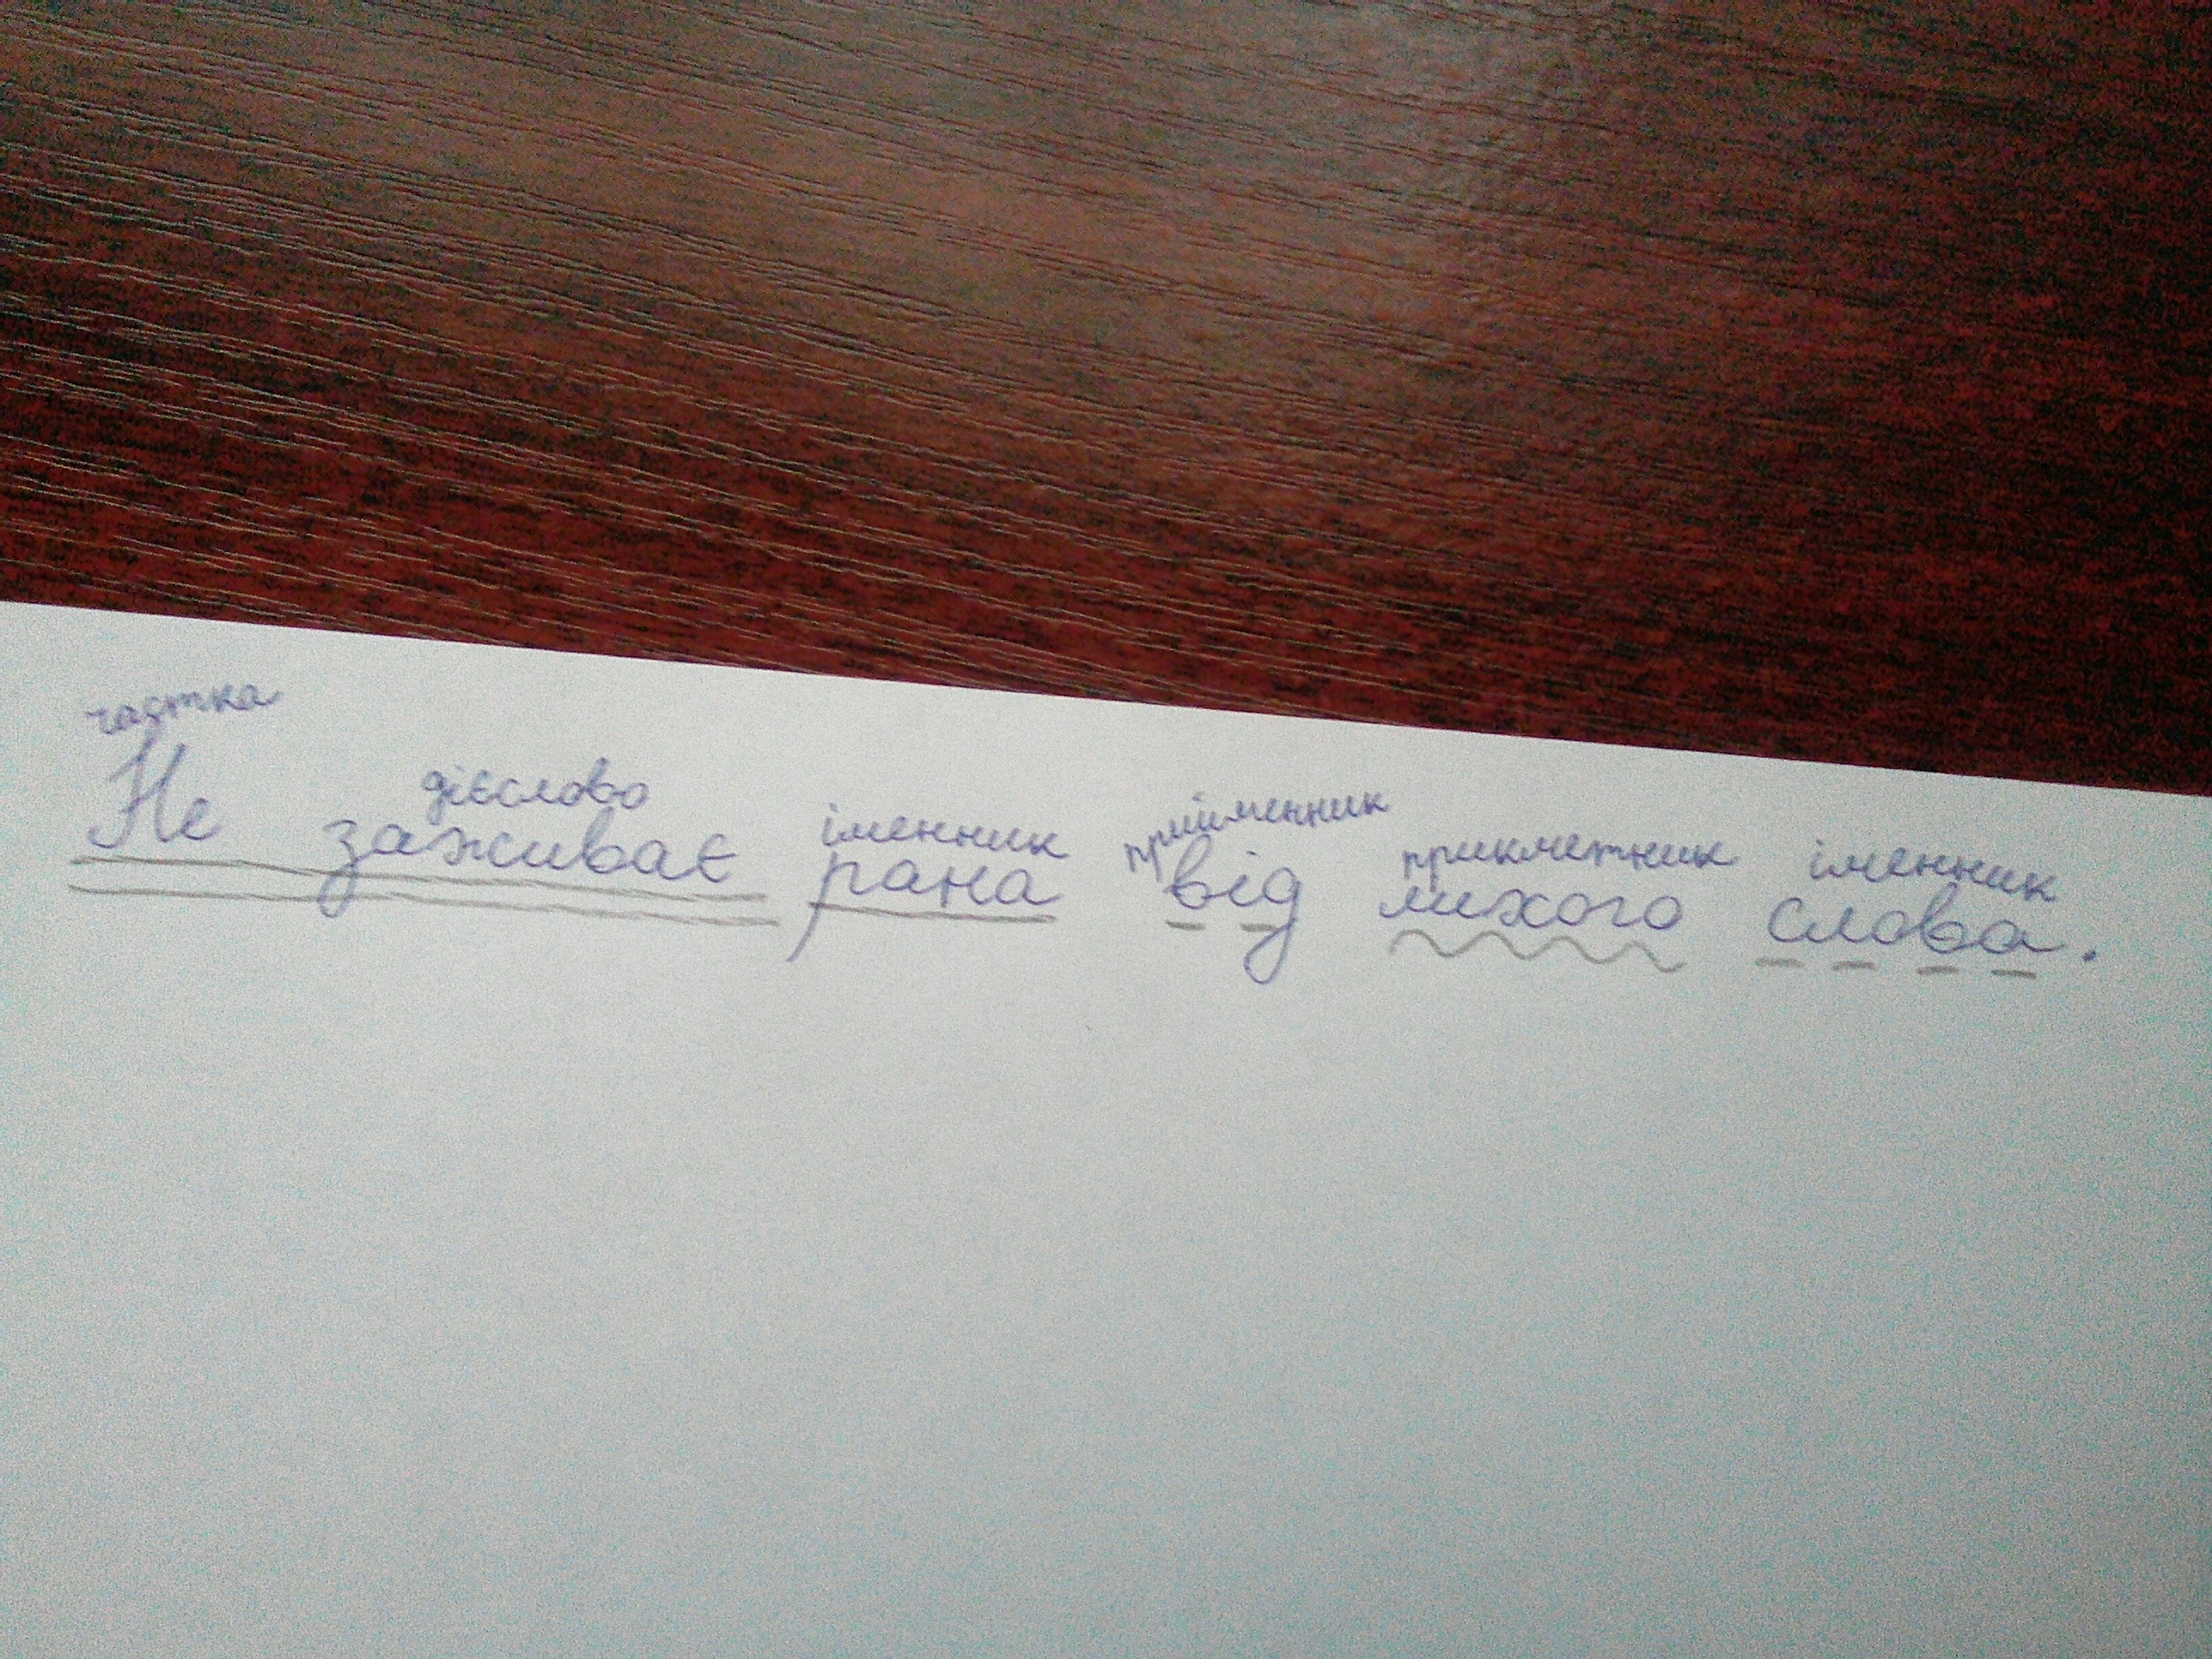 частка дієслово іменник прийменник прикметник іменник
Не заживає рана від лихого слова.